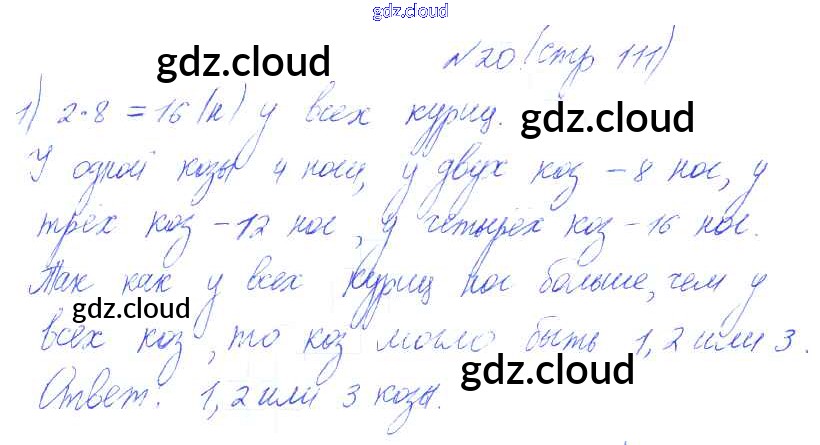 gdz.cloud
№20 (стр 111)
gdz.cloud
1) 2·8 = 16 (н) у всех куриц.
gdz.cloud
У одной козы 4 ноги, у двух коз – 8 ног, у
трёх коз – 12 ног, у четырёх коз – 16 ног.
Так как у всех куриц ног больше, чем у
gdz.cloud
всех коз, то коз могло быть 1, 2 или 3.
gdz.cloud
Ответ: 1, 2 или 3 козы.